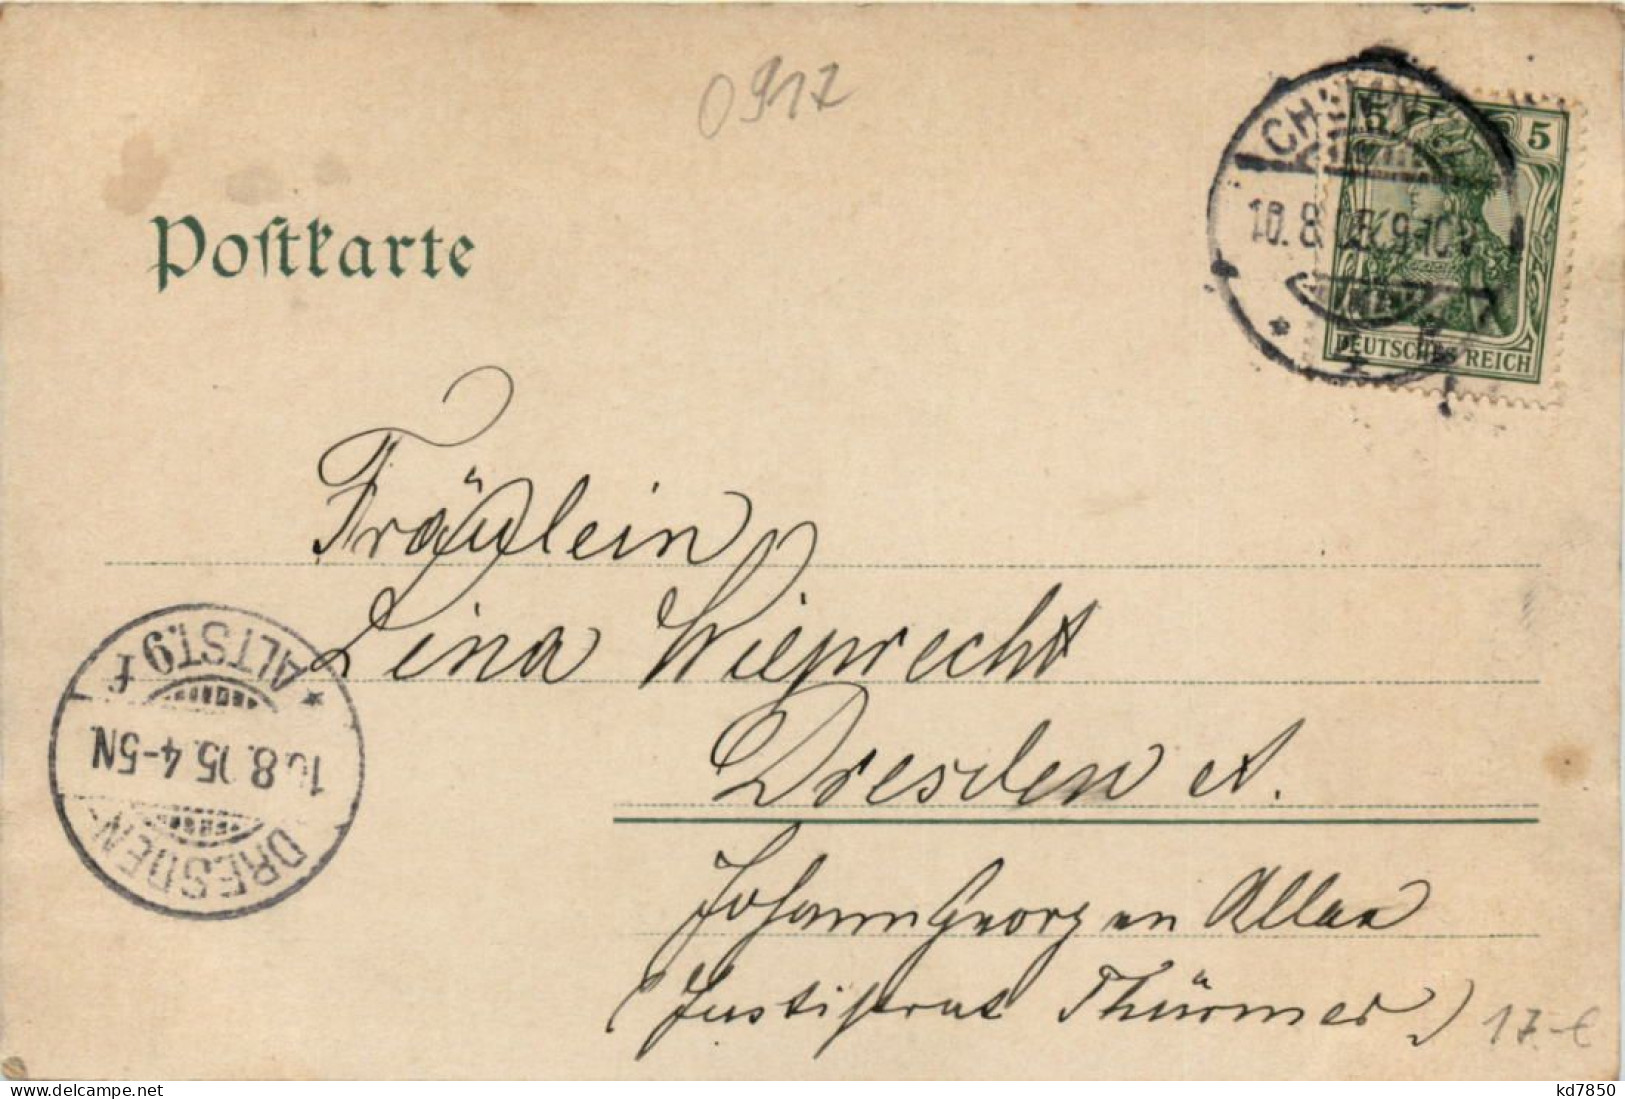 0917
5 5
10.8.05 9-10V
DEUTSCHES REICH
Poſtkarte
Fräulein
Lina Wieprecht
Dresden A.
Johann Georgen Allee
(Justizrat Thürmer)
DRESDEN-
10.8.05.4-5N
ALTST.9 f
17.-€
www.delcampe.net
kd7850